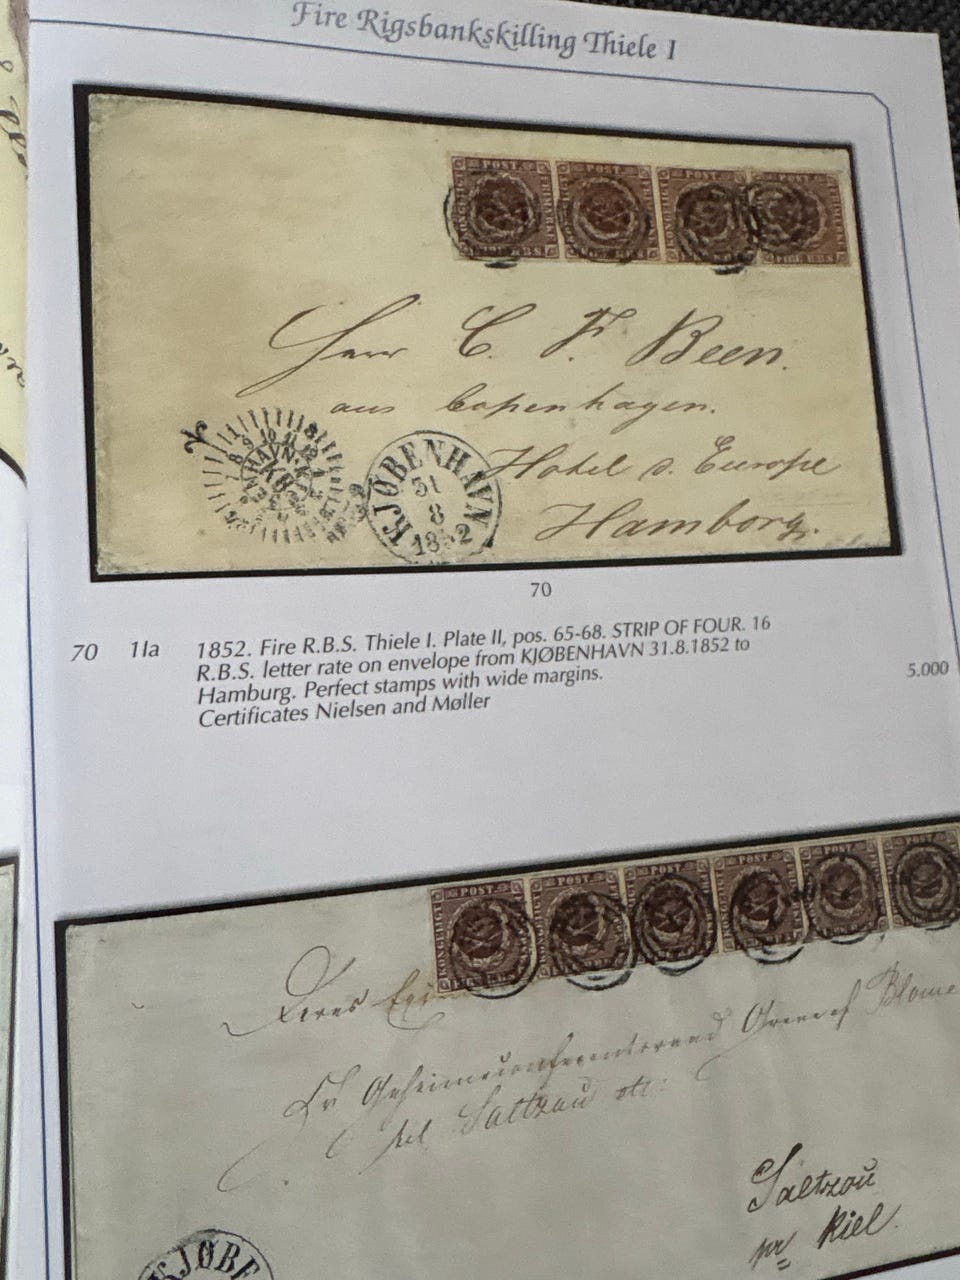 Fire Rigsbankskilling Thiele I
POST POST POST POST
FIRE R.B.S.
Herr C. F. Been.
aus Copenhagen.
Hotel d. Europe
Hamborg.
KJØBENHAVN
31
8
1852
70
70 1Ia 1852. Fire R.B.S. Thiele I. Plate II, pos. 65-68. STRIP OF FOUR. 16
R.B.S. letter rate on envelope from KJØBENHAVN 31.8.1852 to
Hamburg. Perfect stamps with wide margins. 5.000
Certificates Nielsen and Møller
POST POST POST POST POST POST
Deres
Geheimeconferentsraad Greve af Blome
til Saltzau
Saltzau
pr Kiel.
KJØBE